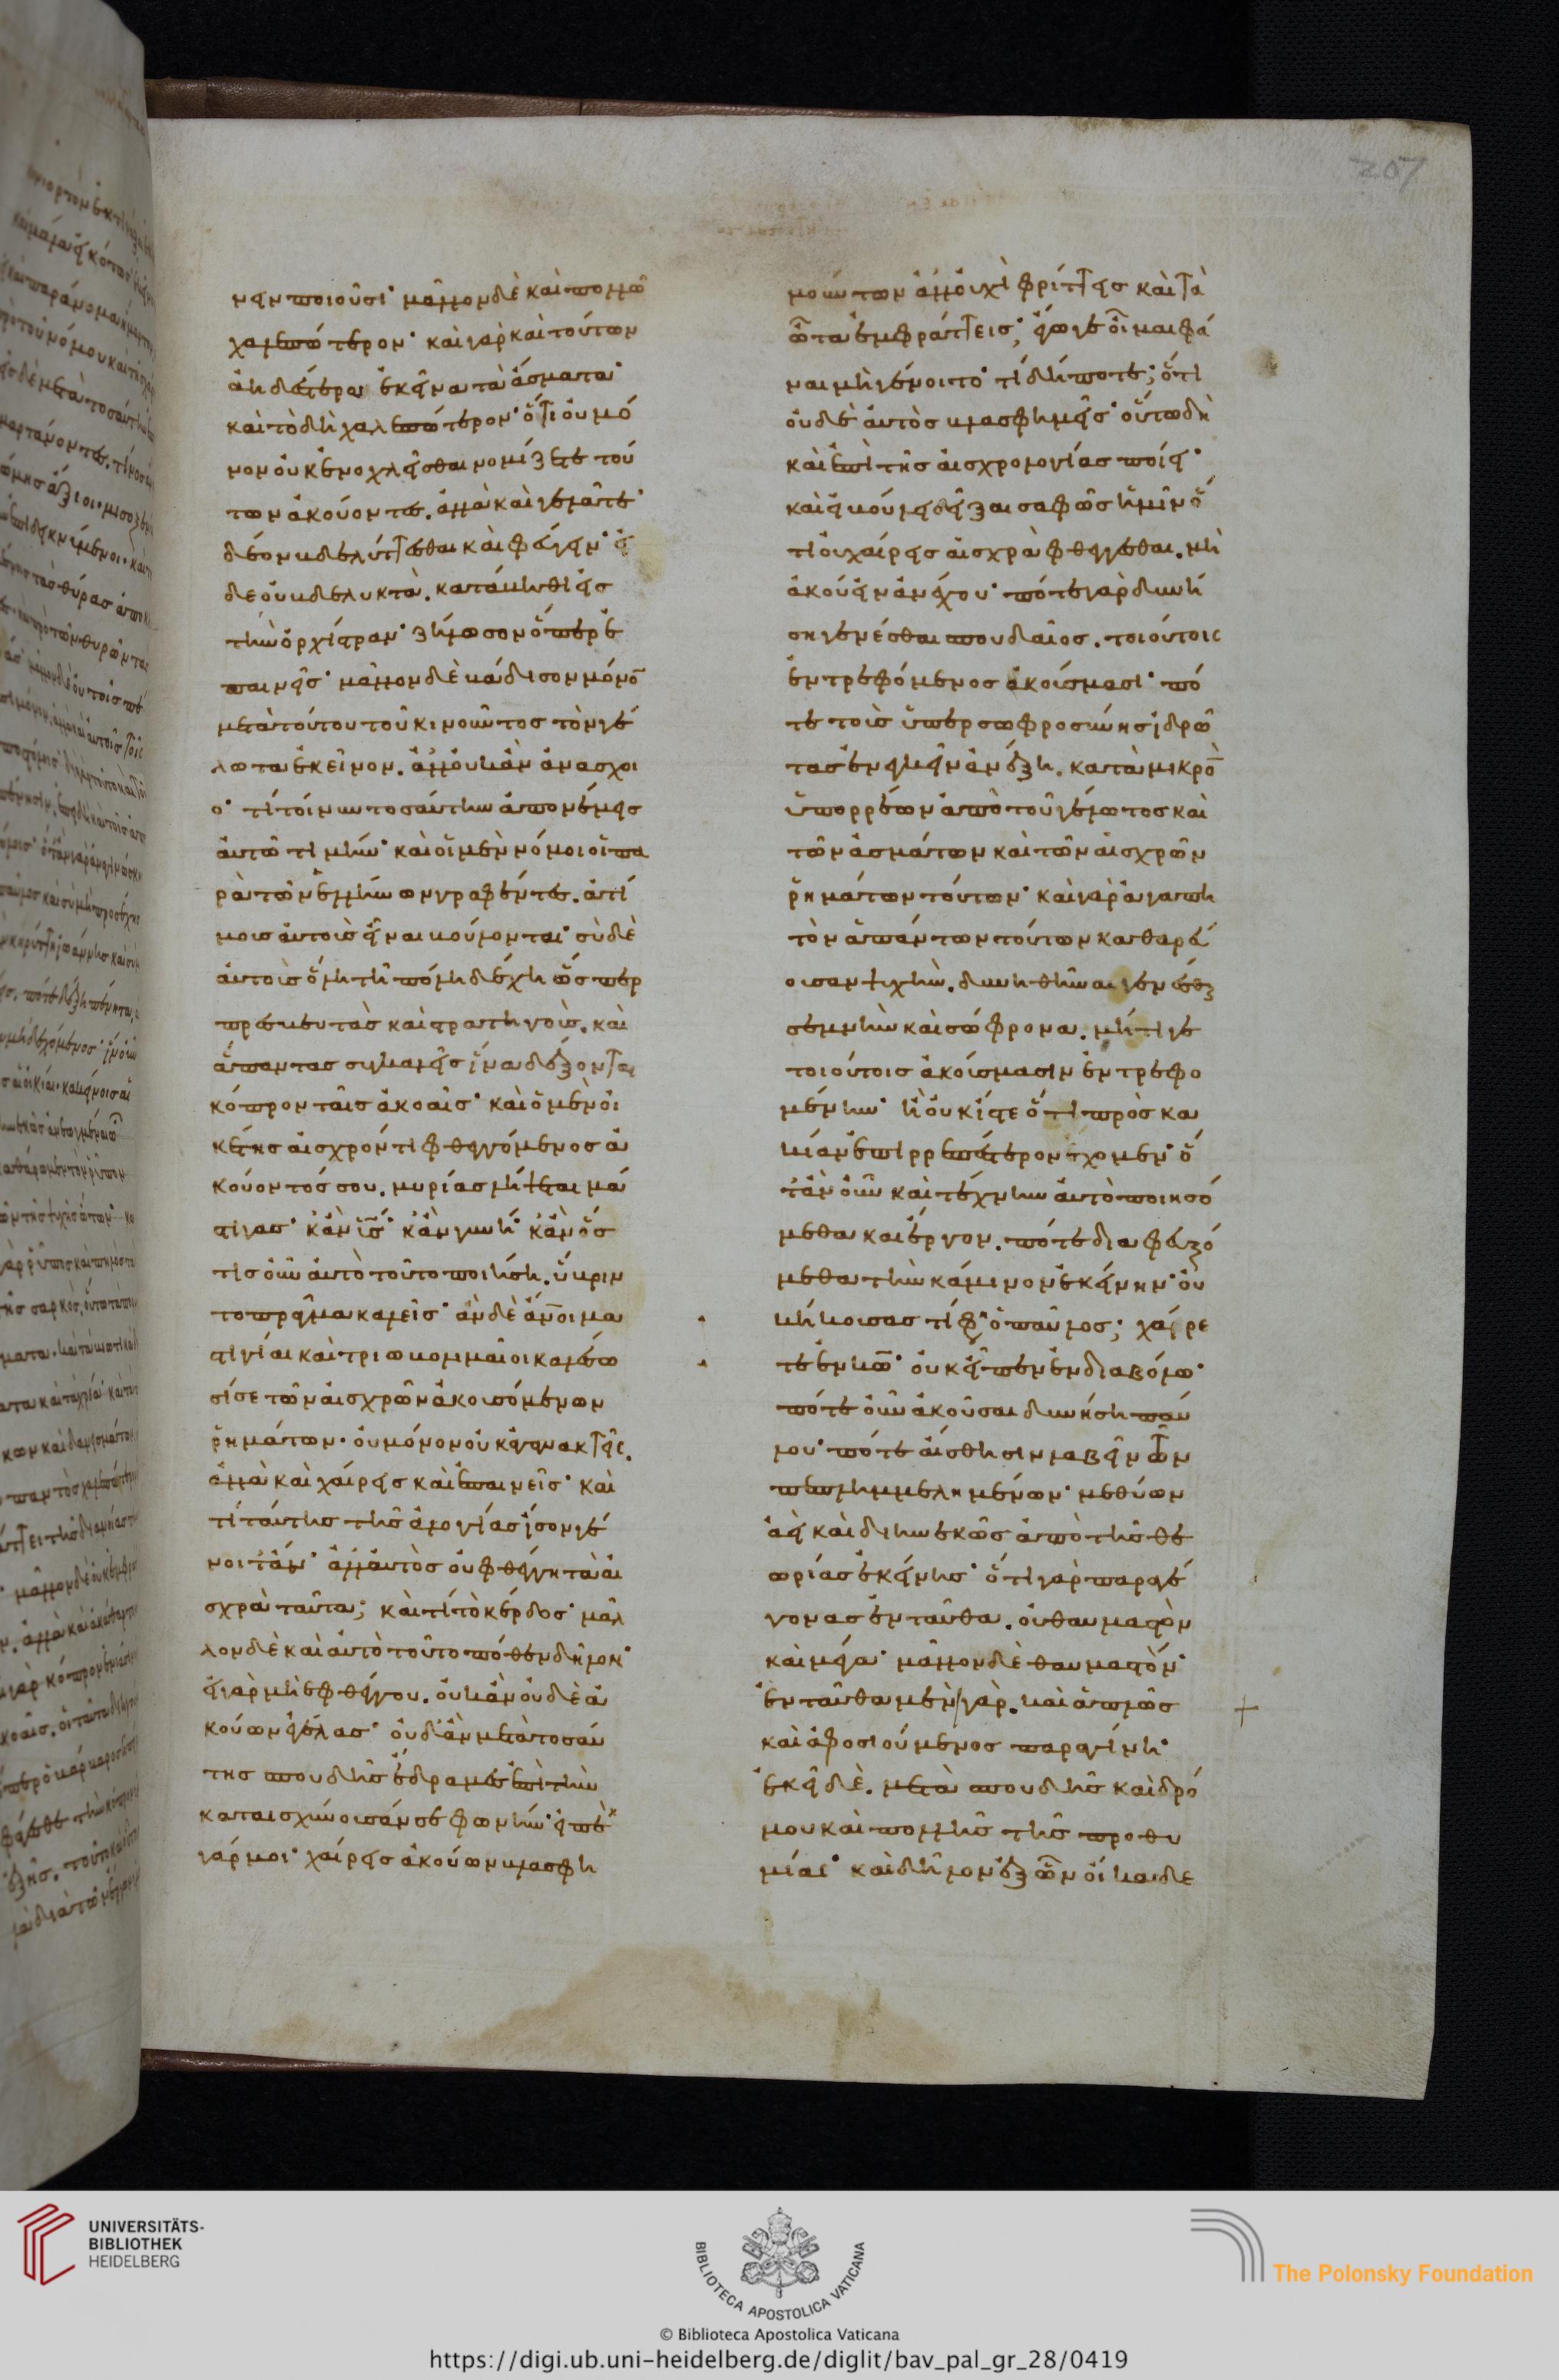 νειν ποιοῦσι· μᾶλλον δὲ καὶ πολλῶ
χαλεπώτερον· καὶ γὰρ καὶ τούτων
ἀηδέστερα ἐκεῖνα τὰ ἄσματα·
καὶ τὸ δὴ χαλεπώτερον· ὅτι οὐ μό
νον οὐκ ἐνοχλεῖσθαι νομίζετε τού
των ἀκούοντες. ἀλλὰ καὶ γελᾶτε·
δέον βδελύττεσθαι καὶ φεύγειν· εἰ
δε οὐ βδελυκτὰ. κατάβηθι εἰς
τὴν ὀρχήστραν· ζήλωσον ὅπερ ἐ
παινεῖς· μᾶλλον δὲ βάδισον μόνο̅
μετὰ τούτου τοῦ κινοῦντος τὸν γέ
λωτα ἐκεῖνον. ἀλλ' οὐκ ἂν ἀνάσχοι
ο· τί τοίνυν τοσαύτην ἀπονέμεις
αὐτῶ τιμήν· καὶ οἱ μὲν νόμοι οἱ πα
ρὰ τῶν ἑλλήνων γραφέντες. ἀτί
μους αὐτοὺς εἶναι βούλονται· σὺ δὲ
αὐτοὺς ὅλη τῆ πόλη δέχη ὥσπερ
πρεσβευτὰς καὶ στρατηγοὺς. καὶ
ἅπαντας συγκαλεῖς ἵνα δέξονται
κόπρον ταῖς ἀκοαῖς· καὶ ὁ μὲν οἰ
κέτης αἰσχρόν τι φθεγγόμενος ἀ
κούοντός σου. μυρίας λήψεται μά
στιγας· κἂν υ̅ς· κἂν γυνή· κἂν ὅσ
τις οὖν αὐτὸ τοῦτο ποιήση. ὕβριν
το πρᾶγμα καλεῖς· ἂν δὲ ἄν̅οι μα
στιγίαι καὶ τριωβολιμαῖοι καλέσω
σί σε τῶν αἰσχρῶν ἀκουσόμενον
ῥημάτων. οὐ μόνον οὐκ ἀγανακτεῖς.
ἀλλὰ καὶ χαίρεις καὶ ἐπαινεῖς· καὶ
τί ταύτης τῆς ἀλογίας ἴσον γέ
νοιτ' ἄν· ἀλλ' αὐτὸς οὐ φθέγγη τὰ αἰ
σχρὰ ταῦτα; καὶ τί τὸ κέρδος· μᾶλ
λον δὲ καὶ αὐτὸ τοῦτο πόθεν δῆλον·
εἰ γὰρ μὴ ἐφθέγγου. οὐκ ἂν οὐδὲ ἀ
κούων ἐγέλας· οὐδ' ἂν μετὰ τοσαύ
της σπουδῆς ἔδραμες ἐπὶ τὴν
καταισχύνουσάν σε φωνήν· εἰπὲ
γάρ μοι· χαίρεις ἀκούων βλασφη
μούντων ἀλλ' οὐχὶ φρίττεις καὶ τὰ
ὦτα ἐμφράττεις; ἔγωγε οἶμαι φά
ναι μὴ γένοιτο· τί δήποτε; ὅτι
οὐδὲ αὐτὸς βλασφημεῖς· οὕτω δὴ
καὶ ἐπὶ τῆς αἰσχρολογίας ποίει·
καὶ εἰ βούλει δεῖξαι σαφῶς ἡμῖν ὅ
τι οὐ χαίρεις αἰσχρὰ φθέγγεσθαι. μὴ
ἀκούειν ἀνέχου· πότε γὰρ δυνή
ση γενέσθαι σπουδαῖος. τοιούτοις
ἐντρεφόμενος ἀκούσμασι· πό
τε τοὺς ὑπὲρ σωφροσύνης ἱδρῶ
τας ἐνεγκεῖν ἀνέξη. κατὰ μικρὸ̅
ὑπορρέων ἀπὸ τοῦ γέλωτος καὶ
τῶν ἀσμάτων καὶ τῶν αἰσχρῶν
ῥημάτων τούτων· καὶ γὰρ ἀγαπη
τὸν ἁπάντων τούτων καθαρεύ
ουσαν ψυχὴν. δυνηθῆναι γενέσθαι
σεμνὴν καὶ σώφρονα. μή τί γε
τοιούτοις ἀκούσμασιν ἐντρεφο
μένην· ἢ οὐκ ἴστε ὅτι πρὸς κα
κίαν ἐπιρρεπέστερον ἔχομεν· ὅ
τ' ἂν οὖν καὶ τέχνην αὐτὸ ποιησό
μεθα καὶ ἔργον. πότε διαφευξό
μεθα τὴν κάμινον ἐκείνην· οὐ
κ ἤκουσας τί φη ὁ παῦλος; χαίρε
τε ἐν κω̅· οὐκ εἶπεν ἐν διαβόλω·
πότε οὖν ἀκοῦσαι δυνήση παύ
λου· πότε αἴσθησιν λαβεῖν τῶν
πεπλημμελημένων· μεθύων
ἀεὶ καὶ διηνεκῶς ἀπὸ τῆς θε
ωρίας ἐκείνης· ὅτι γὰρ παραγέ
γονας ἐνταῦθα. οὐ θαυμαστὸν
καὶ μέγα· μᾶλλον δὲ θαυμαστόν·
ἐνταῦθα μὲν γὰρ. καὶ ἁπλῶς
καὶ ἀφοσιούμενος παραγίνη·
ἐκεῖ δὲ. μετὰ σπουδῆς καὶ δρό
μου καὶ πολλῆς τῆς προθυ
μίας· καὶ δῆλον ἐξ ὧν οἴκαδε
207
UNIVERSITÄTS-
BIBLIOTHEK
HEIDELBERG
BIBLIOTECA APOSTOLICA VATICANA
The Polonsky Foundation
© Biblioteca Apostolica Vaticana
https://digi.ub.uni-heidelberg.de/diglit/bav_pal_gr_28/0419